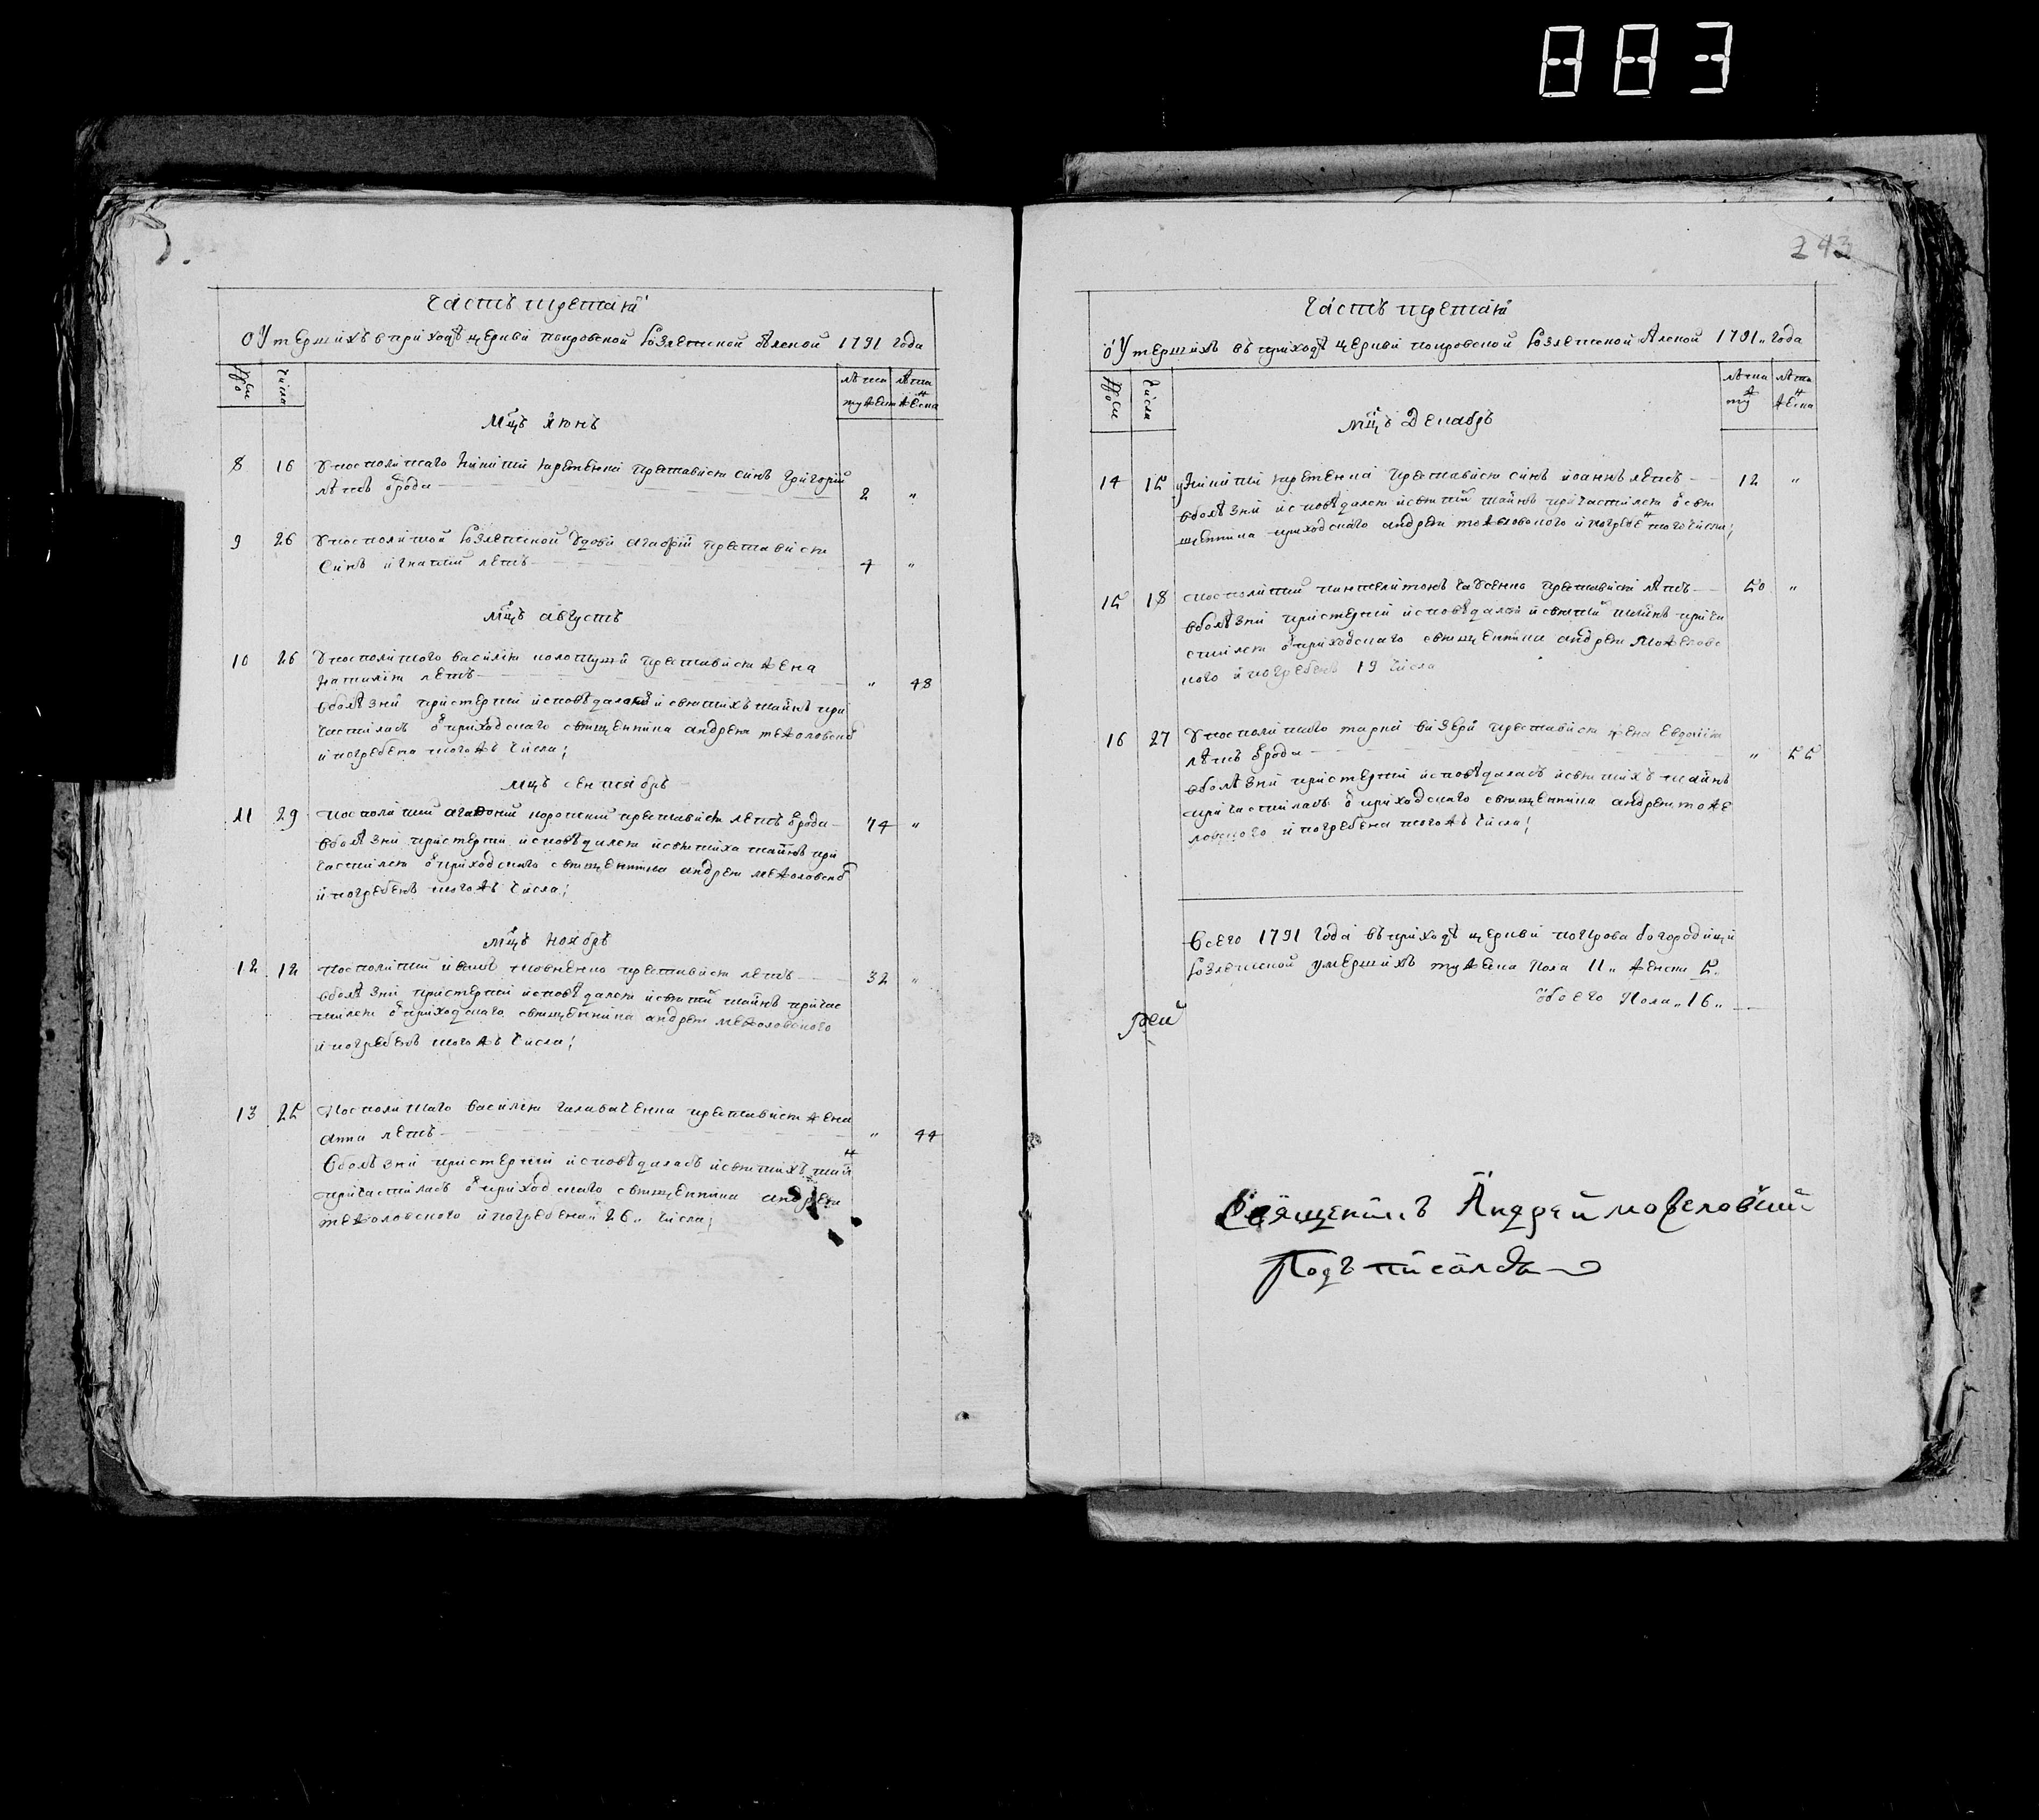 883
243
Часть третая
О Умершихъ в приходѣ церкви покровской козлецкой ѧвленой 1791 года
числа
лѣта мужеск
лѣта женска
Мцъ Июнь
8 16 У посполитаго Никити Яременка преставися синъ Григорий
лѣтъ ѿроду 2 "
9 26 У посполитой козлецкой вдови Агафии преставися
Синъ игнатий летъ 4 "
Мцъ августъ
10 26 У посполитого василия колотуши преставися жена
наталия летъ " 48
в болѣзни при смерти исповѣдалась и святихъ таинъ при
частилась ѿ приходского священника андрея можоловског
и погребена того жъ числа;
Мцъ сентябрь
11 29 посполитий агафоний коропский преставися летъ ѿроду 74 "
в болѣзни при смерти исповѣдался и святиха таинъ при
частился ѿ приходского священника андрея можоловског
и погребенъ того жъ числа;
Мцъ ноябрь
12 12 посполитий иванъ преставися летъ 32 "
в болѣзни при смерти исповѣдался и святий таинъ причас
тился ѿ приходского священника андрея можоловского
и погребенъ того жъ числа;
13 25 Посполитаго василия преставися жена
анна летъ " 44
в болѣзни при смерти исповѣдалась и святихъ таин
причастилась ѿ приходского священника андрея
можоловского и погребена 26" числа;
Часть третая
О Умершихъ въ приходѣ церкви покровской козлецкой ѧвленой 1791" года
числа
лѣта муж
лѣта женска
мцъ Декабрь
14 15 у Никити яременка преставися синъ иоаннъ летъ 12 "
в болѣзни исповѣдался и святий таинъ причастился ѿ свя
щенника приходского андрея можоловского и погребен того числа;
15 18 посполитий пантелимонъ преставися лѣтъ 50 "
в болѣзни при смерти исповѣдался и святий таинъ прича
стился ѿ приходского священника андрея Можеловс
кого и погребенъ 19 числа
16 27 У посполитого марка преставися жена Евдокия
лѣтъ ѿроду " 55
в болѣзни при смерти исповѣдалась и святихъ таинъ
причастилась ѿ приходского священника андрея може
ловского и погребена того жъ числа;
Всего 1791 года въ приходѣ церкви покрова богородици
козлецкой умершихъ мужеска пола 11" женска 5"
обоего Пола "16"
Священникъ Андрей можеловский
Подъписалъся